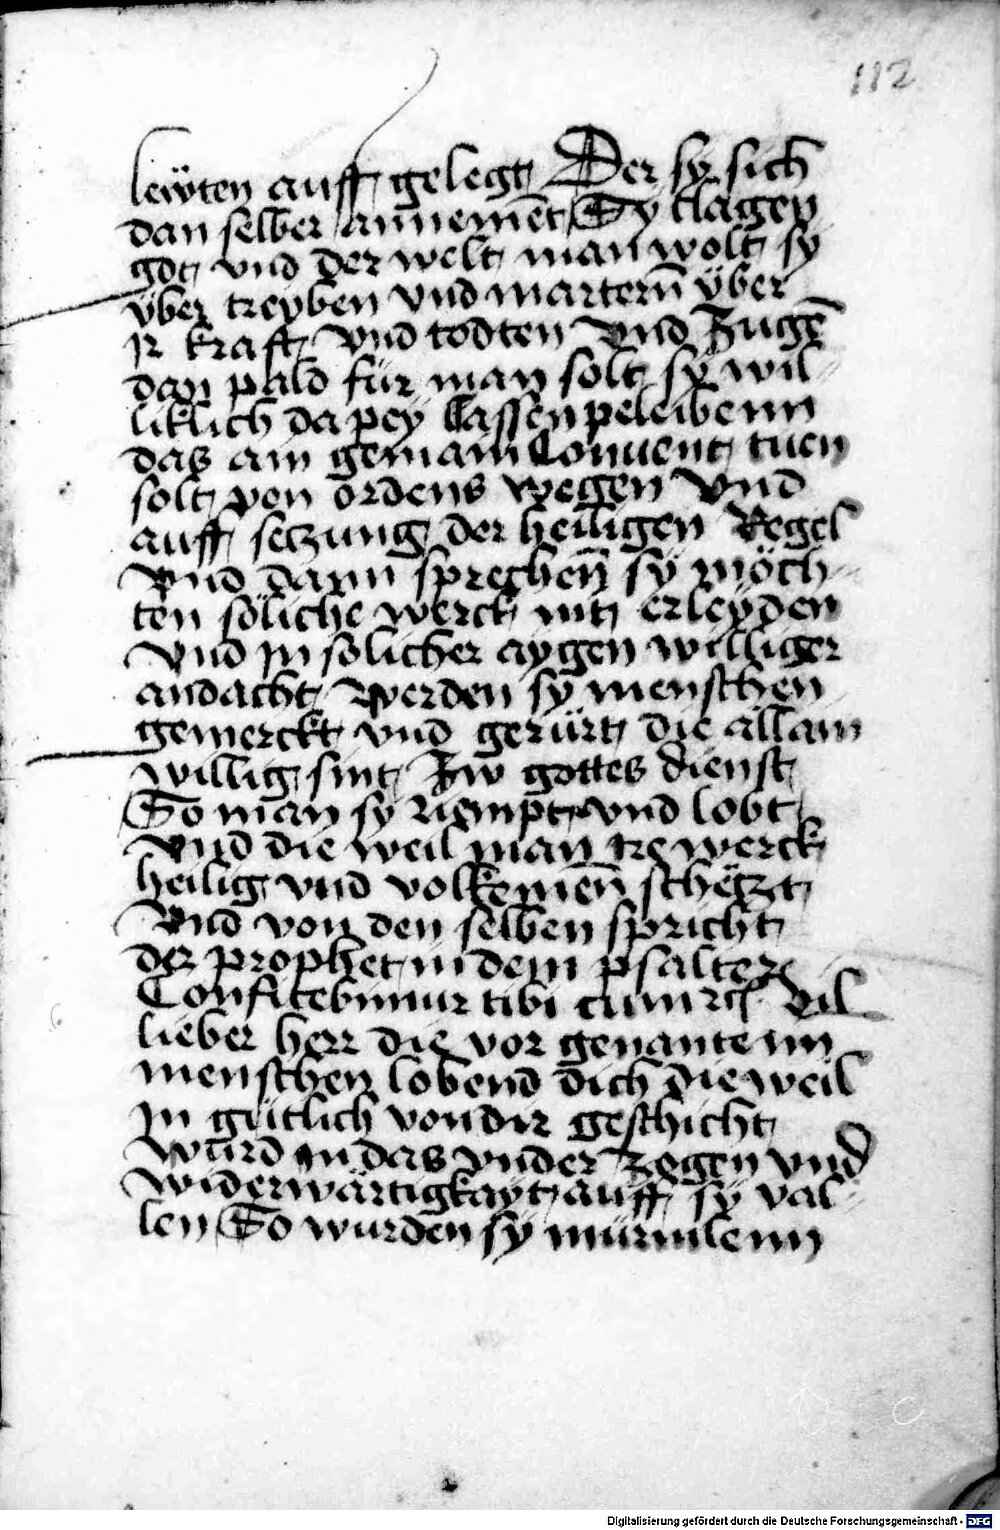 112
lewten auff gelegt Der sy sich
dan selber annemēt Sy clagen
got vnd der welt man wolt sy
vber treyben vnd martern̄ vber
ir kraft vnd todten Vnd Zugē
dan pald für man solt sy wil-
liklich da pey lassen peleibenn
das ain gemain Conuent tuen
solt von ordens wegen Vnd
auff setzung der heiligen Regel
Vnd dann sprechen̄ sy möch-
ten söliche werck nit erleyden
Vnd jn solicher aygen williger
andacht werden sy menschen
gemerckt vnd gerürt die allain
willig sint Zw gottes dienst
So man sy rempt vnd lobt
Vnd die weil man ire werck
heilig vnd volkemen̄ schëtzt
Vnd von den selben spricht
der prophet in dem psalter
Confitebimur tibi cum rc̄ Vil
lieber herr die vor genantenn
menschen lobend dich die weil
jn gütlich von dir geschicht
wurd jn das vnder zogen vnd
widerwärtigkayt auff sy val-
len So wurden sy murmlenn
Digitalisierung gefördert durch die Deutsche Forschungsgemeinschaft - DFG